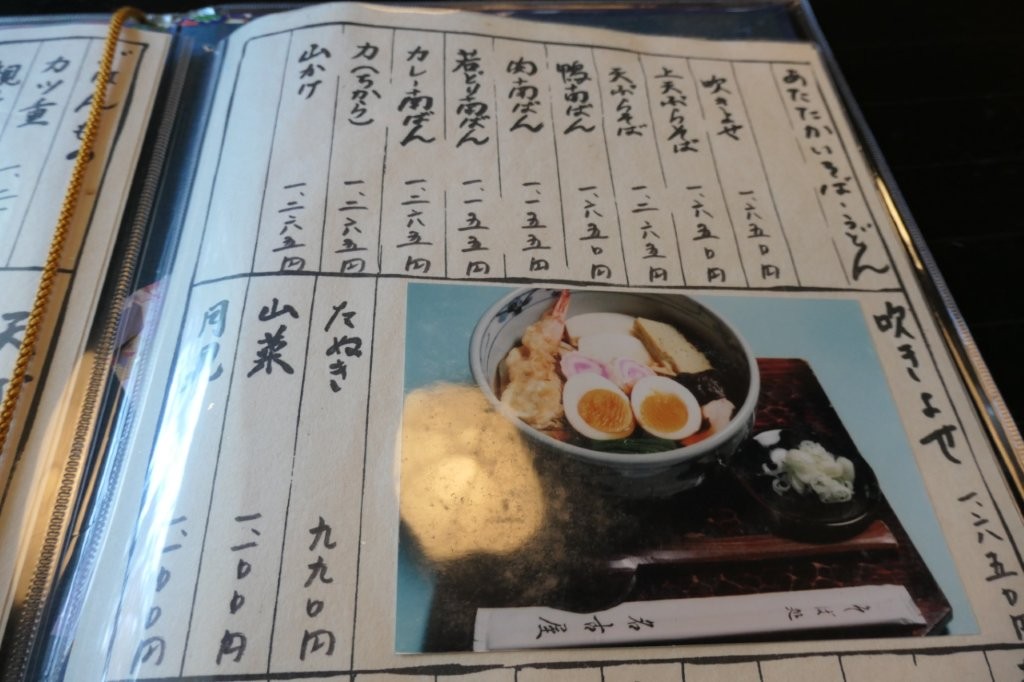 あたたかいそば・うどん
吹きよせ 一、六五〇円
上天ぷらそば 一、六五〇円
天ぷらそば 一、二六五円
鴨南ばん 一、六五〇円
肉南ばん 一、一五五円
若どり南ばん 一、一五五円
カレー南ばん 一、二六五円
力(ちから) 一、二六五円
山かけ 一、二六五円
吹きよせ 一、六五〇円
そば処 名古屋
たぬき 九九〇円
山菜 一、一〇〇円
月見 一、一〇〇円
カツ重